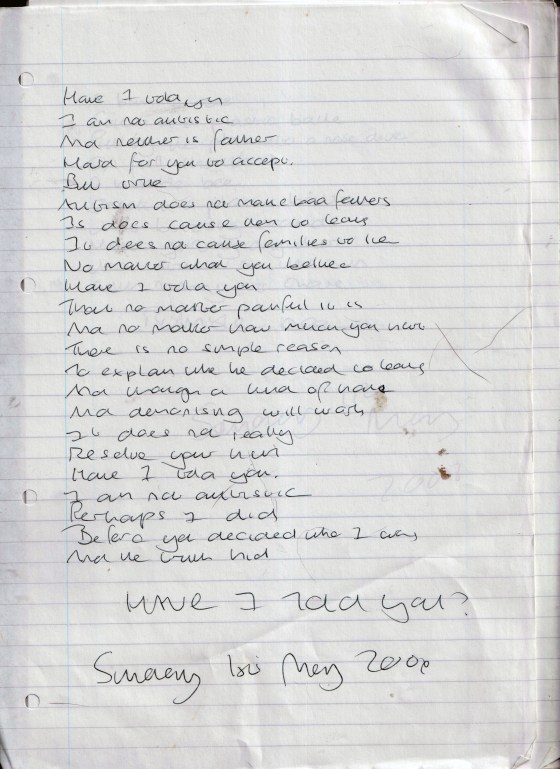 Have I told you
I am not autistic
And neither is father
Hard for you to accept.
But true
Autism does not make bad fathers
Is does cause them to leave
It does not cause families to lie
No matter what you believe
Have I told you
That no matter painful it is
And no matter how much you hurt
There is no simple reason
To explain why he decided to leave
And though a kind of hate
And demonising will work
It does not really
Resolve your hurt
Have I told you.
I am not autistic
Perhaps I did
Before you decided who I am
And the truth hid
Have I told you?
Sunday 1st May 200